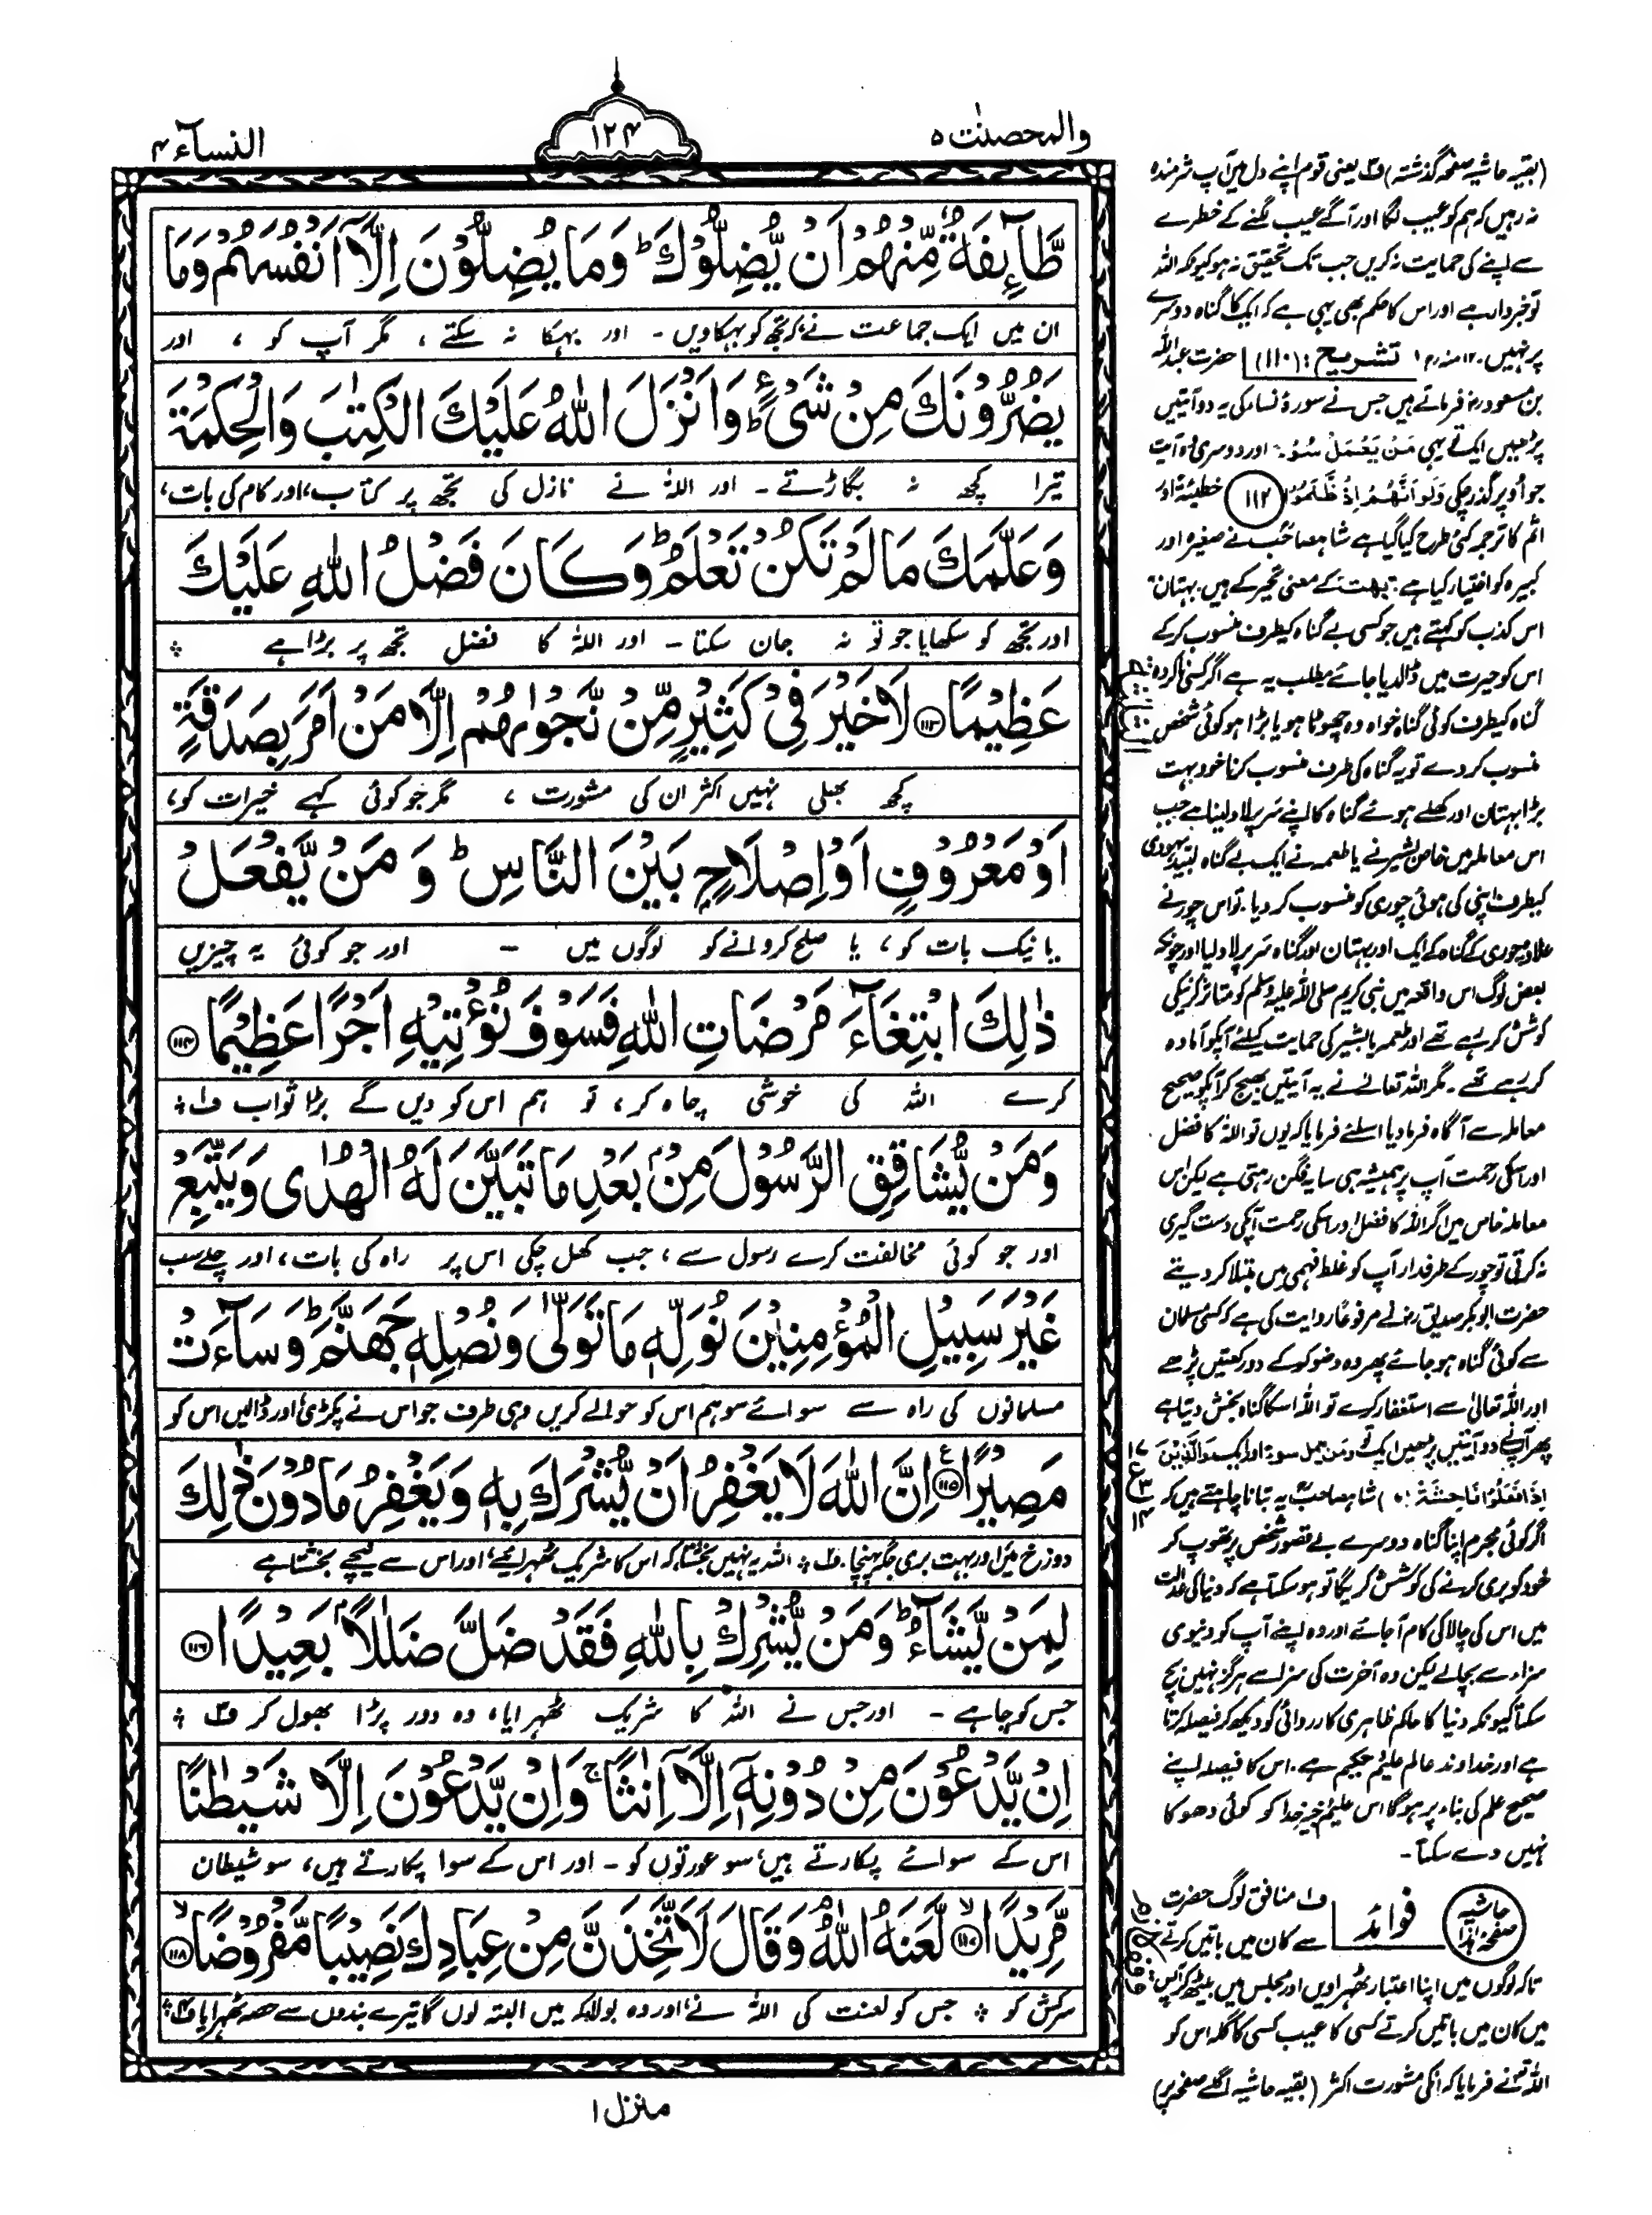 والمحصنٰت ۵
۱۲۴
النسآء ۴
طَّآئِفَةٌ مِّنْهُمْ اَنْ يُّضِلُّوْكَ ؕ وَمَا يُضِلُّوْنَ اِلَّاۤ اَنْفُسَهُمْ وَمَا
ان میں ایک جماعت نے کہ تجھ کو بہکاویں ۔ اور بہکا نہ سکتے ، مگر آپ کو ، اور
يَضُرُّوْنَكَ مِنْ شَیْءٍ ؕ وَاَنْزَلَ اللّٰهُ عَلَيْكَ الْكِتٰبَ وَالْحِكْمَةَ
تیرا کچھ نہ بگاڑتے ۔ اور اللہ نے نازل کی تجھ پر کتاب، اور کام کی بات،
وَعَلَّمَكَ مَا لَمْ تَكُنْ تَعْلَمُ ؕ وَكَانَ فَضْلُ اللّٰهِ عَلَيْكَ
اور تجھ کو سکھایا جو تو نہ جان سکتا ۔ اور اللہ کا فضل تجھ پر بڑا ہے ؞
عَظِيْمًا ﴿۱۱۳﴾ لَا خَيْرَ فِیْ كَثِيْرٍ مِّنْ نَّجْوٰىهُمْ اِلَّا مَنْ اَمَرَ بِصَدَقَةٍ
کچھ بھلی نہیں اکثر ان کی مشورت ، مگر جو کوئی کہے خیرات کو،
اَوْ مَعْرُوْفٍ اَوْ اِصْلَاحٍۭ بَيْنَ النَّاسِ ؕ وَ مَنْ يَّفْعَلْ
یا نیک بات کو، یا صلح کروانے کو لوگوں میں ۔ اور جو کوئی یہ چیزیں
ذٰلِكَ ابْتِغَآءَ مَرْضَاتِ اللّٰهِ فَسَوْفَ نُؤْتِيْهِ اَجْرًا عَظِيْمًا ﴿۱۱۴﴾
کرے اللہ کی خوشی چاہ کر، تو ہم اس کو دیں گے بڑا ثواب ف۱ ؞
وَمَنْ يُّشَاقِقِ الرَّسُوْلَ مِنْۢ بَعْدِ مَا تَبَيَّنَ لَهُ الْهُدٰى وَيَتَّبِعْ
اور جو کوئی مخالفت کرے رسول سے ، جب کھل چکی اس پر راہ کی بات، اور چلے سب
غَيْرَ سَبِيْلِ الْمُؤْمِنِيْنَ نُوَلِّهٖ مَا تَوَلّٰى وَنُصْلِهٖ جَهَنَّمَ ؕ وَسَآءَتْ
مسلمانوں کی راہ سے سوائے سو ہم اس کو حوالے کریں وہی طرف جو اس نے پکڑی، اور ڈالیں اس کو
مَصِيْرًا ﴿۱۱۵﴾ اِنَّ اللّٰهَ لَا يَغْفِرُ اَنْ يُّشْرَكَ بِهٖ وَيَغْفِرُ مَا دُوْنَ ذٰلِكَ
دوزخ میں، اور بہت بری جگہ پہنچا ف۲ ؞ اللہ یہ نہیں بخشتا کہ اس کا شریک ٹھہرائیے، اور اس سے نیچے بخشتا ہے
لِمَنْ يَّشَآءُ ؕ وَمَنْ يُّشْرِكْ بِاللّٰهِ فَقَدْ ضَلَّ ضَلٰلًاۢ بَعِيْدًا ﴿۱۱۶﴾
جس کو چاہے ۔ اور جس نے اللہ کا شریک ٹھہرایا، وہ دور پڑا بھول کر ف۳ ؞
اِنْ يَّدْعُوْنَ مِنْ دُوْنِهٖۤ اِلَّاۤ اِنٰثًا ۚ وَاِنْ يَّدْعُوْنَ اِلَّا شَيْطٰنًا
اس کے سوائے پکارتے ہیں، سو عورتوں کو ۔ اور اس کے سوا پکارتے ہیں، سو شیطان
مَّرِيْدًا ﴿۱۱۷﴾ لَّعَنَهُ اللّٰهُ ۘ وَقَالَ لَاَتَّخِذَنَّ مِنْ عِبَادِكَ نَصِيْبًا مَّفْرُوْضًا ﴿۱۱۸﴾
سرکش کو ؞ جس کو لعنت کی اللہ نے، اور وہ بولا کہ میں البتہ لوں گا تیرے بندوں سے حصہ ٹھہرایا ف۴ ؞
منزل ۱
(بقیہ حاشیہ صفحہ گذشتہ) ف۲ یعنی قوم اپنے دل میں آپ شرمندہ
نہ رہیں کہ ہم کو عیب لگا اور آگے عیب لگنے کے خطرے
سے اپنے کی حمایت نہ کریں جب تک تحقیق نہ ہو کیونکہ اللہ
تو خبردار ہے اور اس کا حکم بھی یہی ہے کہ ایک کا گناہ دوسرے
پر نہیں ۔۱۲ منہ رح ۱ تشریح : (۱۱۰) حضرت عبداللہ
بن مسعود رض فرماتے ہیں جس نے سورۂ نساء کی یہ دو آیتیں
پڑھیں ایک تو یہی مَنْ يَعْمَلْ سُوْءً اور دوسری وہ آیت
جو اوپر گذر چکی وَلَوْ اَنَّهُمْ اِذْ ظَّلَمُوْا (۱۱۲) خطیئۃ اور
اثم کا ترجمہ کئی طرح کیا گیا ہے شاہ صاحبؒ نے صغیرہ اور
کبیرہ کو اختیار کیا ہے۔ بہت کے معنی تحیر کے ہیں۔ بہتان
اس کذب کو کہتے ہیں جو کسی بے گناہ کیطرف منسوب کر کے
اس کو حیرت میں ڈالدیا جائے مطلب یہ ہے اگر کسی ناکردہ
گناہ کیطرف کوئی گناہ خواہ وہ چھوٹا ہو یا بڑا ہو کوئی شخص
منسوب کر دے تو بے گناہ کی طرف منسوب کرنا خود بہت
بڑا بہتان اور کھلے ہوئے گناہ کا اپنے سر پر لاد لینا ہے جب
اس معاملہ میں خاص بشیر نے یا طعمہ نے ایک بے گناہ لبید یہودی
کیطرف اپنی کی ہوئی چوری کو منسوب کر دیا۔ تو اس چور نے
علاوہ چوری کے گناہ کے ایک اور بہتان اور گناہ سر پر لاد لیا اور چونکہ
بعض لوگ اس واقعہ میں نبی کریم صلی اللہ علیہ وسلم کو متاثر کرنیکی
کوشش کر رہے تھے اور طعمہ یا بشیر کی حمایت کیلئے آپکو آمادہ
کر رہے تھے ۔ مگر اللہ تعالےٰ نے یہ آیتیں بھیج کر آپکو صحیح
معاملہ سے آگاہ فرما دیا اسلئے فرمایا کہ یوں تو اللہ کا فضل
اور اسکی رحمت آپ پر ہمیشہ ہی سایہ فگن رہتی ہے لیکن اس
معاملہ خاص میں اگر اللہ کا فضل اور اسکی رحمت آپکی دست گیری
نہ کرتی تو چور کے طرفدار آپ کو غلط فہمی میں مبتلا کر دیتے
حضرت ابوبکر صدیق رض نے مرفوعًا روایت کی ہے کہ کسی مسلمان
سے کوئی گناہ ہو جائے پھر وہ وضو کر کے دو رکعتیں پڑھے
اور اللہ تعالیٰ سے استغفار کرے تو اللہ اسکا گناہ بخش دیتا ہے
پھر آپ نے دو آیتیں پڑھیں ایک تو ومن یعمل سوءً اور ایک وَالَّذِيْنَ
اِذَا فَعَلُوْا فَاحِشَةً ) شاہ صاحبؒ یہ بتانا چاہتے ہیں کہ
اگر کوئی مجرم اپنا گناہ دوسرے بے قصور شخص پر تھوپ کر
خود کو بری کرنے کی کوشش کریگا تو ہو سکتا ہے کہ دنیا کی عدالت
میں اس کی چالاکی کام آجائے اور وہ اپنے آپ کو دنیوی
سزاء سے بچا لے لیکن وہ آخرت کی سزا سے ہرگز نہیں بچ
سکتا کیونکہ دنیا کا حاکم ظاہری کارروائی کو دیکھ کر فیصلہ کرتا
ہے اور خداوند عالم علیم حکیم ہے۔ اس کا فیصلہ اپنے
صحیح علم کی بناء پر ہوگا اس علیم خبیر خدا کو کوئی دھوکا
نہیں دے سکتا۔
حاشیہ صفحہ ہٰذا فوائد ف۱ منافق لوگ حضرت
سے کان میں باتیں کرتے
تاکہ لوگوں میں اپنا اعتبار ٹھہراویں اور مجلس میں بیٹھ کر آپس
میں کان میں باتیں کرتے کسی کا عیب کسی کا گلہ اس کو
اللہ تعالیٰ نے فرمایا کہ انکی مشورت اکثر (بقیہ حاشیہ اگلے صفحہ پر)